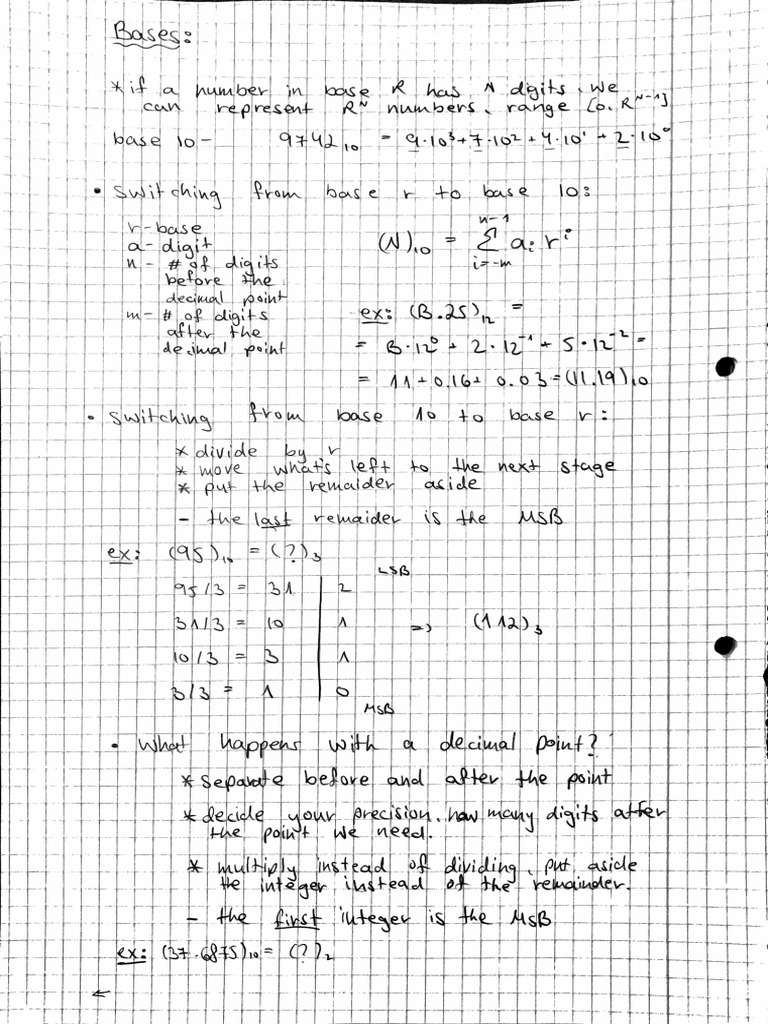 Bases:
* if a number in base R has N digits, we
can represent Rᴺ numbers, range [0, Rᴺ⁻¹]
base 10 - 9742₁₀ = 9·10³+7·10²+4·10¹+2·10⁰
• switching from base r to base 10:
r - base
a - digit
n - # of digits
before the
decimal point
m - # of digits
after the
decimal point
(N)₁₀ = Σ aᵢ rⁱ
n-1
i=-m
ex: (B.25)₁₂ =
= B·12⁰ + 2·12⁻¹ + 5·12⁻² =
= 11+0.16+0.03=(11.19)₁₀
• switching from base 10 to base r:
* divide by r
* move what's left to the next stage
* put the remaider aside
- the last remaider is the MSB
ex: (95)₁₀ = (?)₃
LSB
95/3 = 31 | 2
31/3 = 10 | 1 => (112)₃
10/3 = 3 | 1
3/3 = 1 | 0
MSB
• What happens with a decimal point?
* separate before and after the point
* decide your precision, how many digits after
the point we need.
* multiply instead of dividing, put aside
the integer instead of the remainder.
- the first integer is the MSB
ex: (37.6875)₁₀ = (?)₂
←